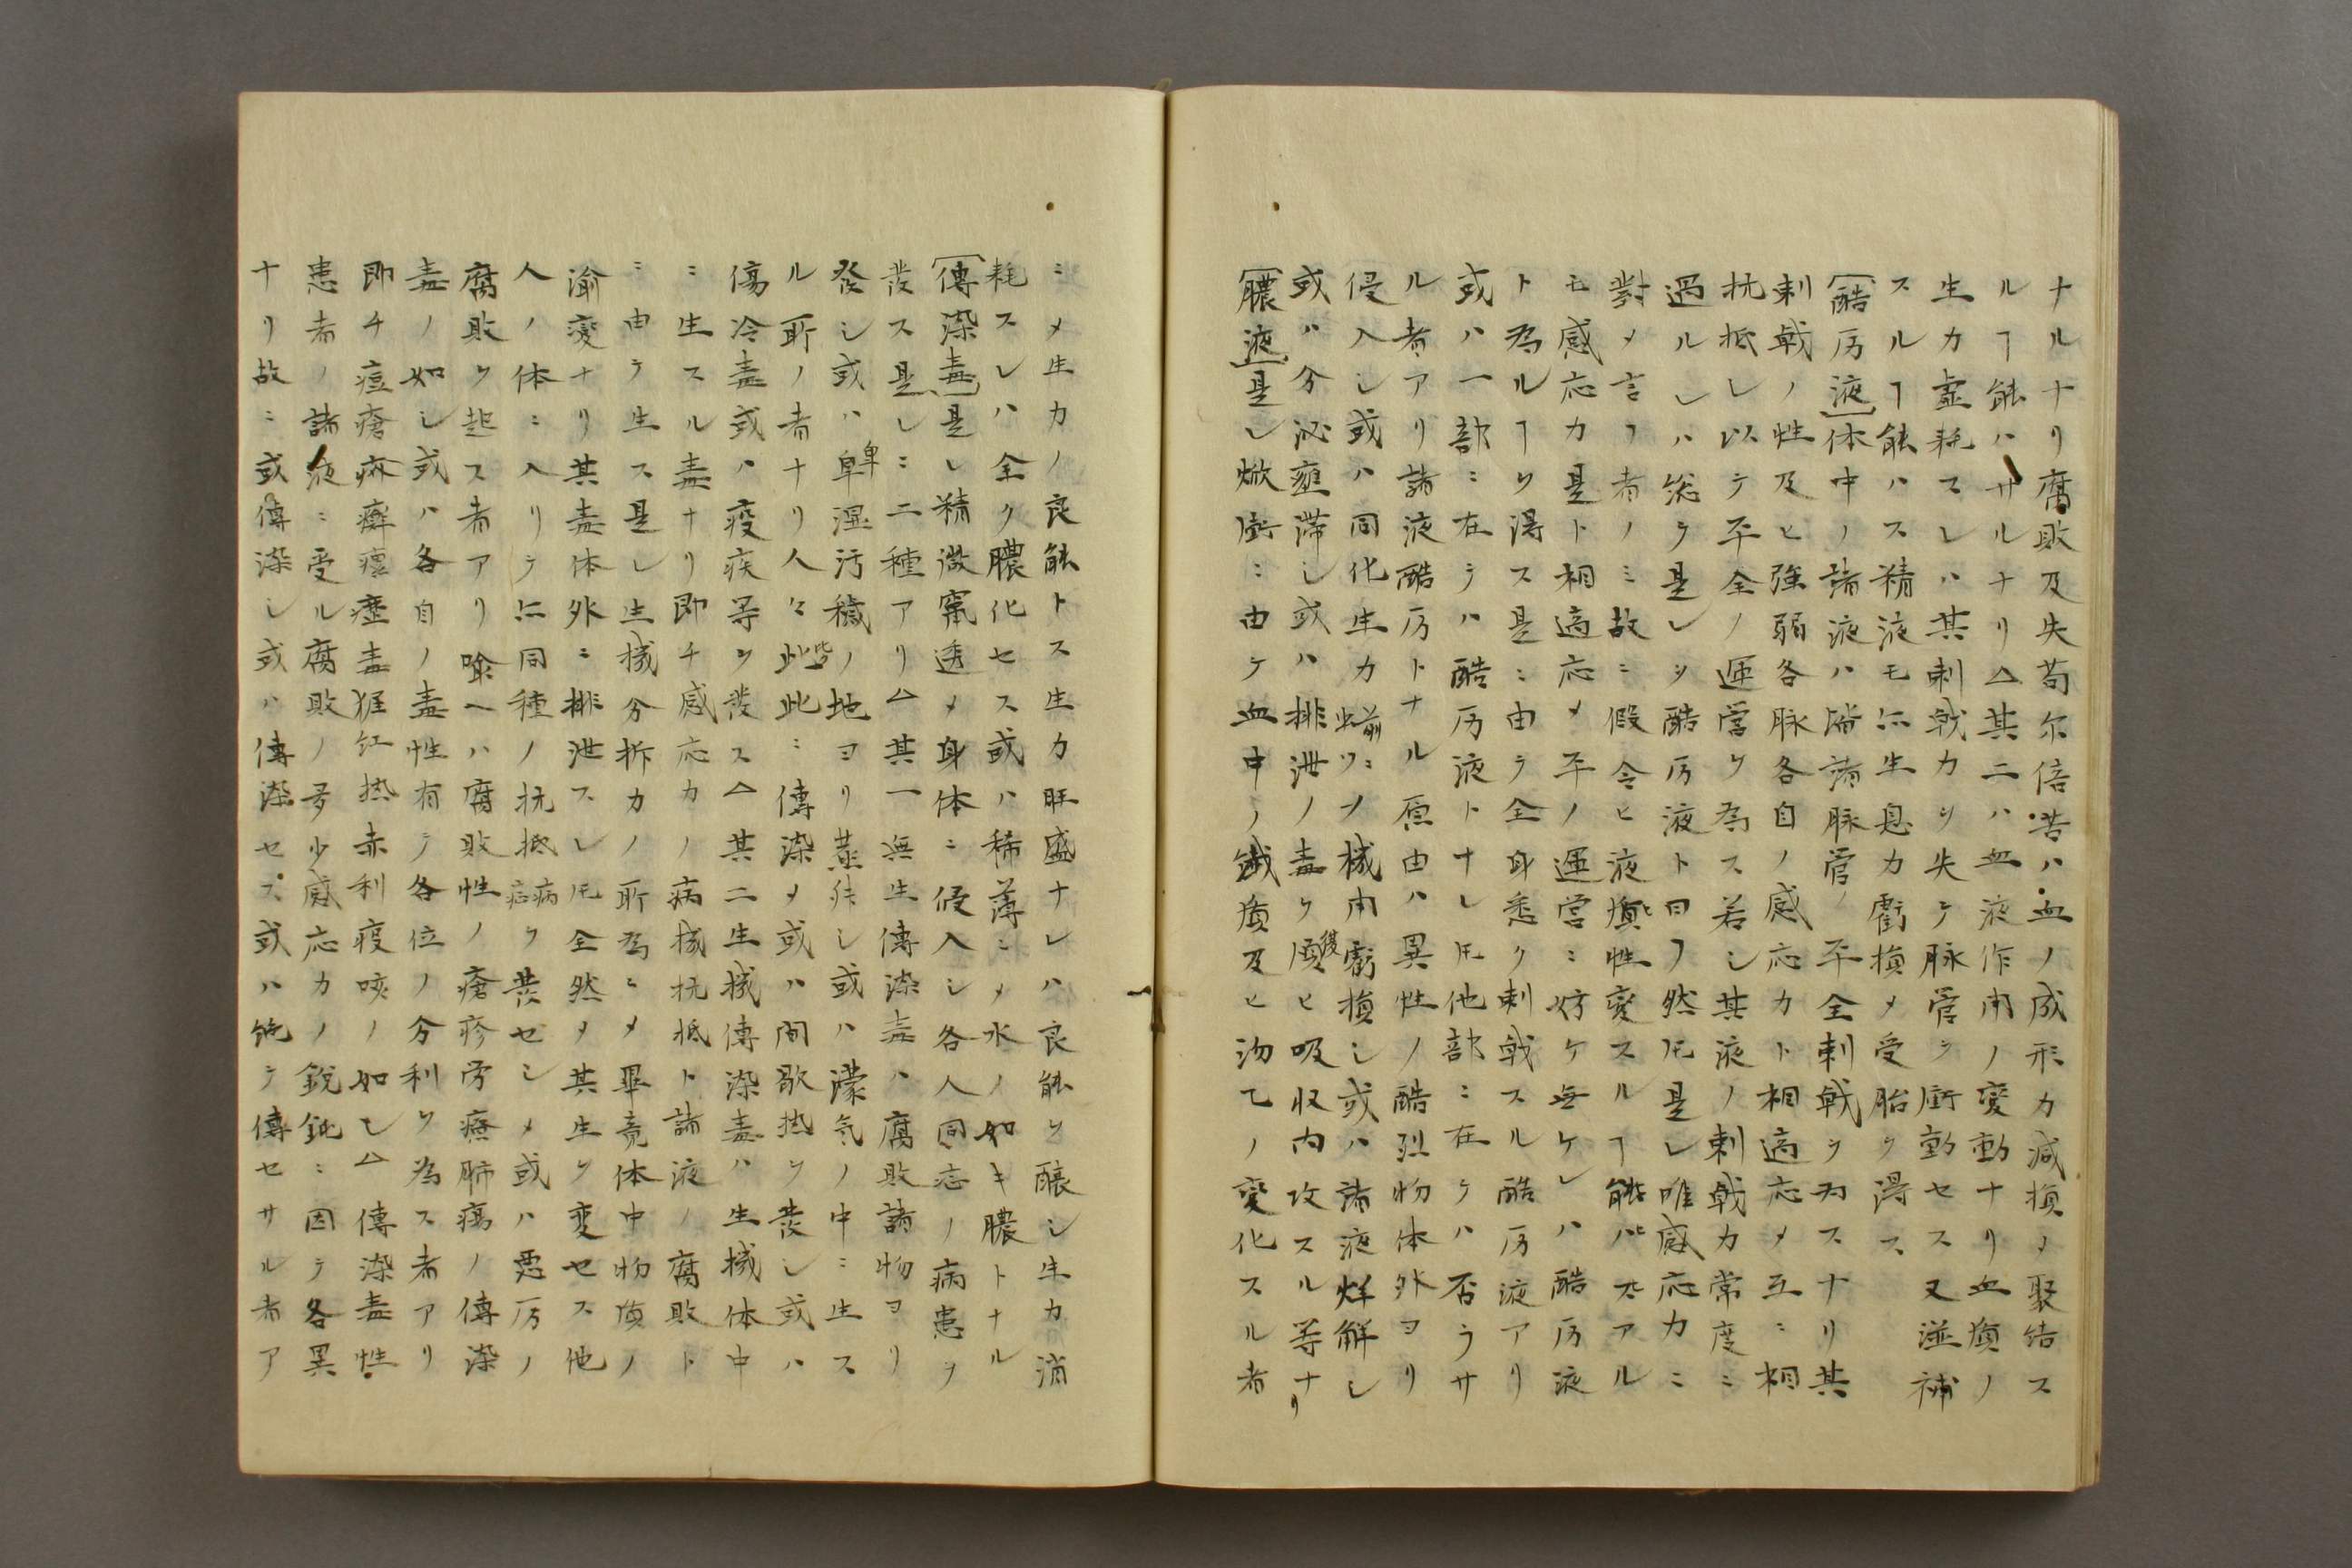 ナルナリ腐敗及失苟尔倍苦ハ血ノ成形力減損メ聚結ス
ルヿ能ハサルナリ△其二ハ血液作用ノ変動ナリ血質ノ
生力虚耗スレハ其刺戟力ヲ失テ脉管ヲ衝動セス又滋補
スルヿ能ハス精液モ亦生息力虧損メ受胎ヲ得ス
酷厉液体中ノ諸液ハ諸脉管ノ平全刺戟ヲ為スナリ其
刺戟ノ性及ヒ強弱各脉各自ノ感応力ト相適応メ互ニ相
抗抵レ以テ平全ノ運営ヲ為ス若シ其液ノ刺戟力常度ニ
過ルレハ総テ是レヲ酷厉液ト曰フ然𪜈是レ唯感応力ニ
對メ言フ者ノミ故ニ假令ヒ液質性変スルヿ能ハスアル
モ感応力是ト相適応メ平ノ運営ニ妨ケ無ケレハ酷厉液
ト為ルヿヲ得ス是ニ由テ全身悉ク刺戟スル酷厉液アリ
或ハ一部ニ在テハ酷厉液トナレ𪜈他部ニ在テハ否ラサ
ル者アリ諸液酷厉トナル原由ハ異性ノ酷烈物体外ヨリ
侵入シ或ハ同化生力ノ機用虧損シ或ハ諸液烊解シ
或ハ分泌壅滞シ或ハ排泄ノ毒ヲ復ヒ吸収内攻スル等ナリ
膿液是レ焮衝ニ由テ血中ノ繊質及ヒ沕乙ノ変化スル者
ニメ生力ノ良能トス生力旺盛ナレハ良能ヲ醸シ生力消
耗スレハ全ク膿化セス或ハ稀薄ニメ水ノ如キ膿トナル
傳染毒是レ精微竄透メ身体ニ侵入シ各人同志ノ病患ヲ
発ス是レニ二種アリ△其一無生傳染毒ハ腐敗諸物ヨリ
発シ或ハ卑湿汚穢ノ地ヨリ蒸発シ或ハ濛気ノ中ニ生ス
ル所ノ者ナリ人々皆此ニ傳染メ或ハ間歇热ヲ発シ或ハ
傷冷毒或ハ疫疾等ヲ発ス△其二生機傳染毒ハ生機体中
ニ生スル毒ナリ即チ感応力ノ病機抗抵ト諸液ノ腐敗ト
ニ由テ生ス是レ生機分拆力ノ所為ニメ畢竟体中物質ノ
渝変ナリ其毒体外ニ排泄スレ𪜈全然メ其生ヲ変セス他
人ノ体ニ入リテ亦同種ノ抗抵病症ヲ発セシメ或ハ悪厉ノ
腐敗ヲ起ス者アリ喩ヘハ腐敗性ノ瘡疹労療肺瘍ノ傳染
毒ノ如シ或ハ各自ノ毒性有テ各位ノ分利ヲ為ス者アリ
即チ痘瘡疥癬瘟毒猩紅热赤利疫咳ノ如し△傳染毒性
患者ノ諸液ニ受ル腐敗ノ多少感応力ノ鋭鈍ニ因テ各異
ナリ故ニ或傳染シ或ハ傳染セス或ハ絶テ傳セサル者ア